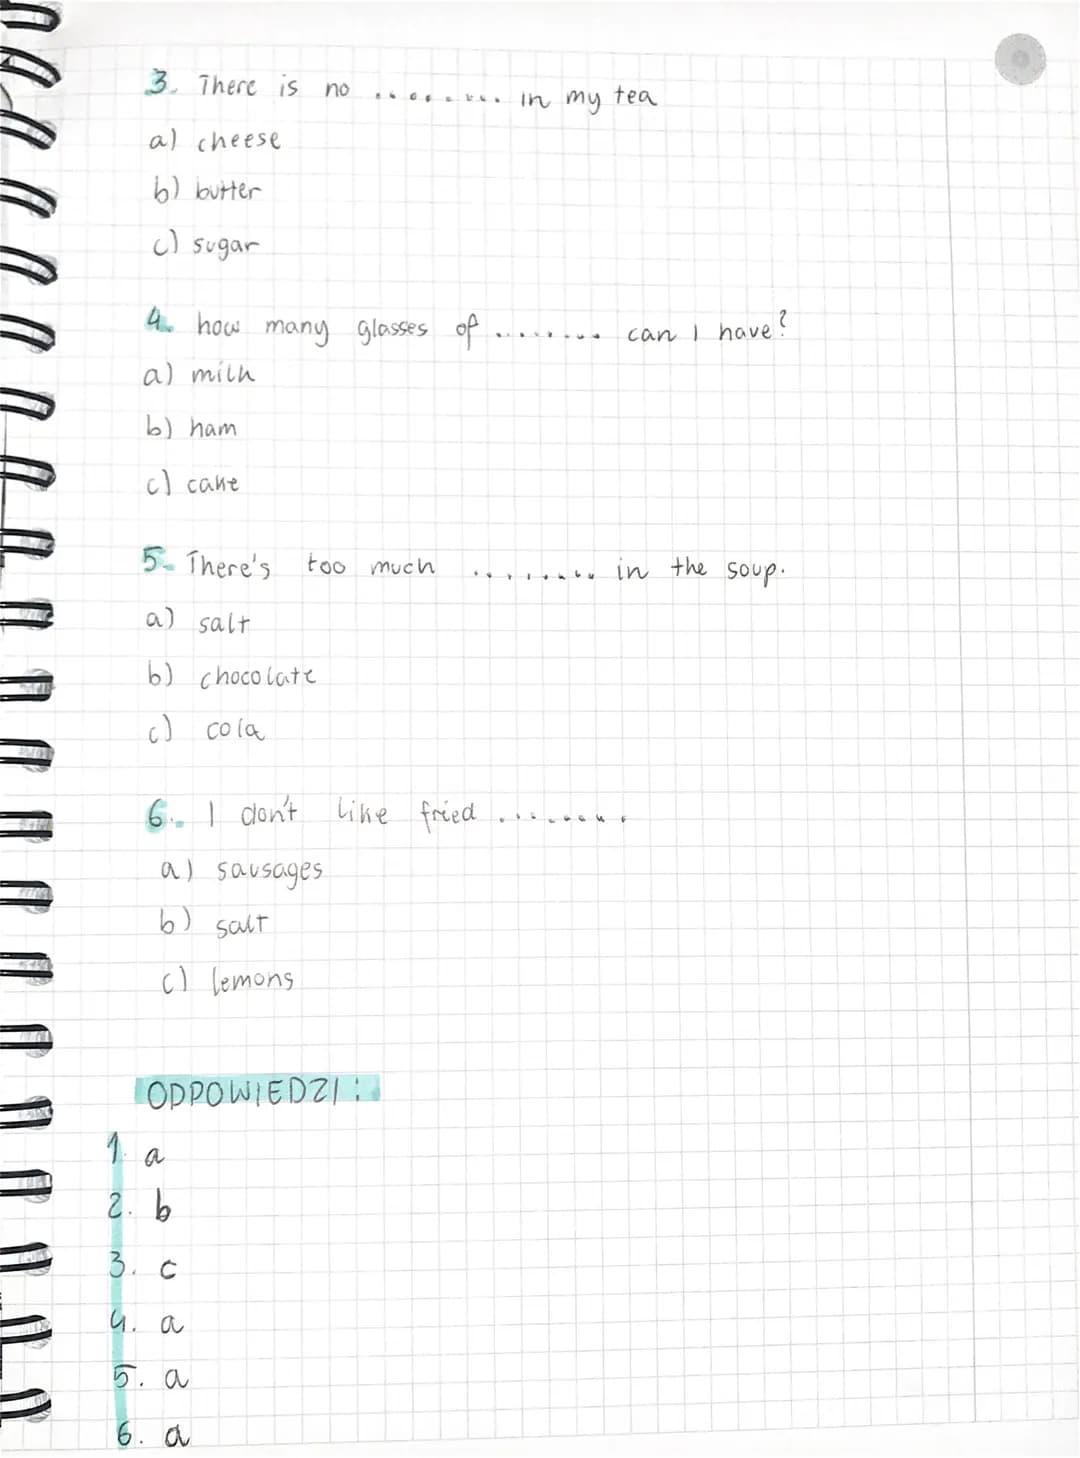 3. There is no ......... in my tea
a) cheese
b) butter
c) sugar
4. how many glasses of ........ can I have?
a) milk
b) ham
c) cake
5. There's too much ......... in the soup.
a) salt
b) chocolate
c) cola
6. I don't like fried .........
a) sausages
b) salt
c) lemons
ODPOWIEDZI:
1. a
2. b
3. c
4. a
5. a
6. a